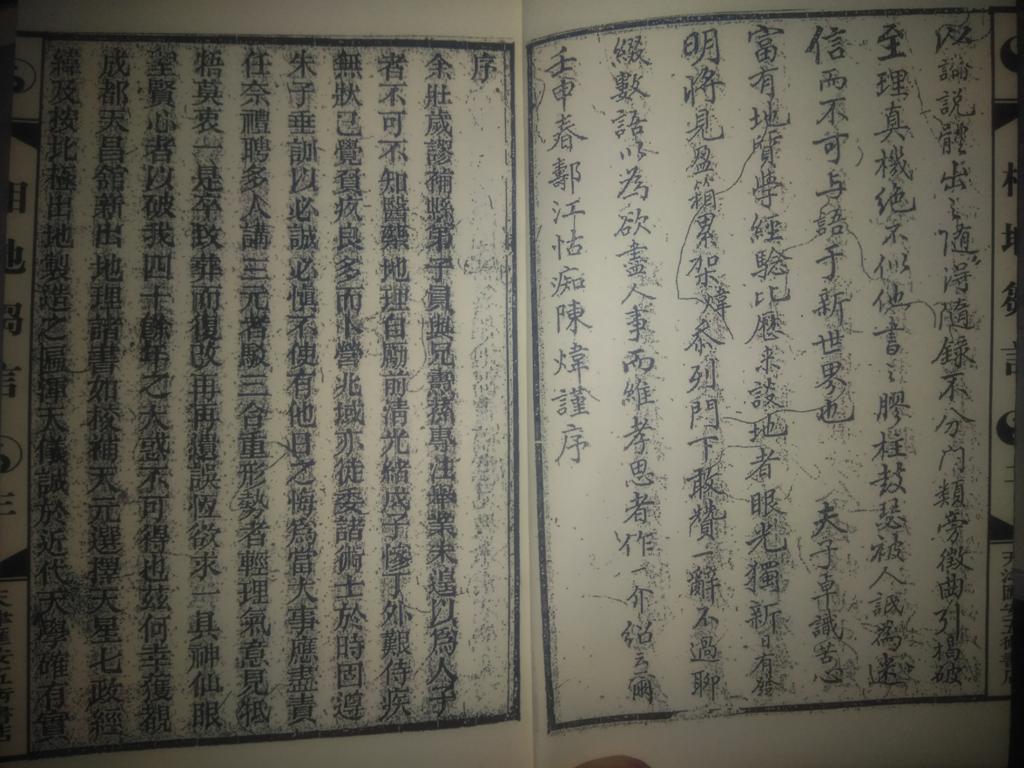 以論說體出之隨得隨錄不分門類旁徵曲引揭破
至理真機絕不似他書之膠柱鼓瑟被人誠為迷
信而不可与語于新世界也　夫子卓識苦心
富有地質學經驗比歷来談地者眼光獨新日有發
明將見盈箱累架煒忝列門下敢贊一辭不過聊
綴數語以為欲盡人事而維孝思者作一介紹云爾
壬申春鄞江怙痴陳煒謹序
序
余壯歲謬補縣第子員與兄憲孫專注舉業未遑以為人子
者不可不知醫藥地理自勵前清光緒戊子慘丁外艱侍疾
無狀已覺負疚良多而卜營兆域亦徒委諸術士於時固遵
朱子垂訓以必誠必慎不使有他日之悔為當大事應盡責
任奈禮聘多人講三元者駁三合重形勢者輕理氣意見牴
牾莫衷一是卒致葬而復改再再遺誤恆欲求一具神仙眼
聖賢心者以破我四十餘年之大惑不可得也茲何幸獲覩
成都天昌館新出地理諸書如校補天元選擇天星七政經
緯及按北極出地製造之區渾天儀誠於近代天學確有實
相地
言
三